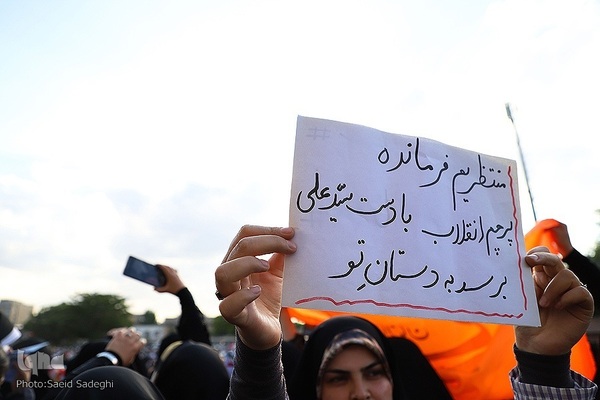 #
منتظریم فرمانده
پرچم انقلاب با دست سیّد علی
برسد به دستانِ تو
iqna
Photo:Saeid Sadeghi